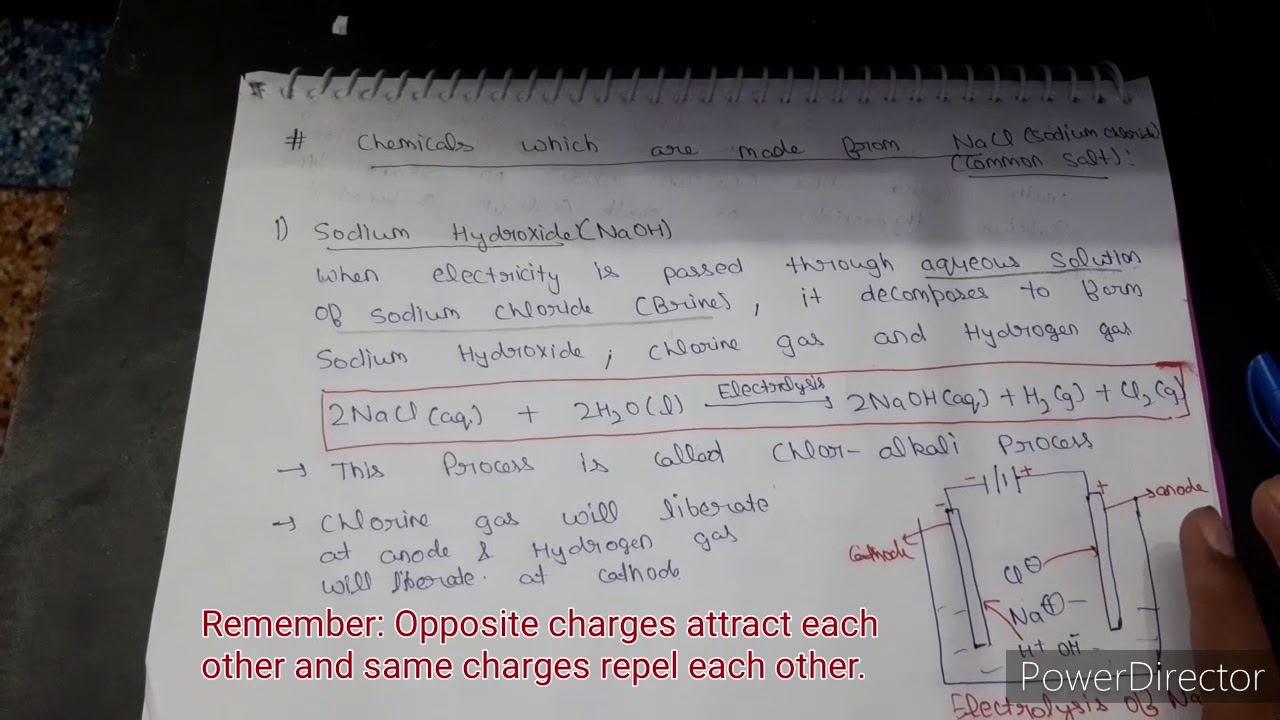 # Chemicals which are made from NaCl (Sodium chloride)
(Common salt):
1) Sodium Hydroxide (NaOH)
When electricity is passed through aqueous solution
of sodium chloride (Brine), it decomposes to form
Sodium Hydroxide, chlorine gas and Hydrogen gas
2NaCl (aq) + 2H₂O(l) Electrolysis → 2NaOH(aq) + H₂(g) + Cl₂(g)
→ This Process is called Chlor-alkali Process
→ Chlorine gas will liberate
at anode & Hydrogen gas
will liberate at cathode
- +
- +
anode
Cathode
Cl⊖
Na⊕
H⁺ OH⁻
Electrolysis of Na
Remember: Opposite charges attract each
other and same charges repel each other.
PowerDirector